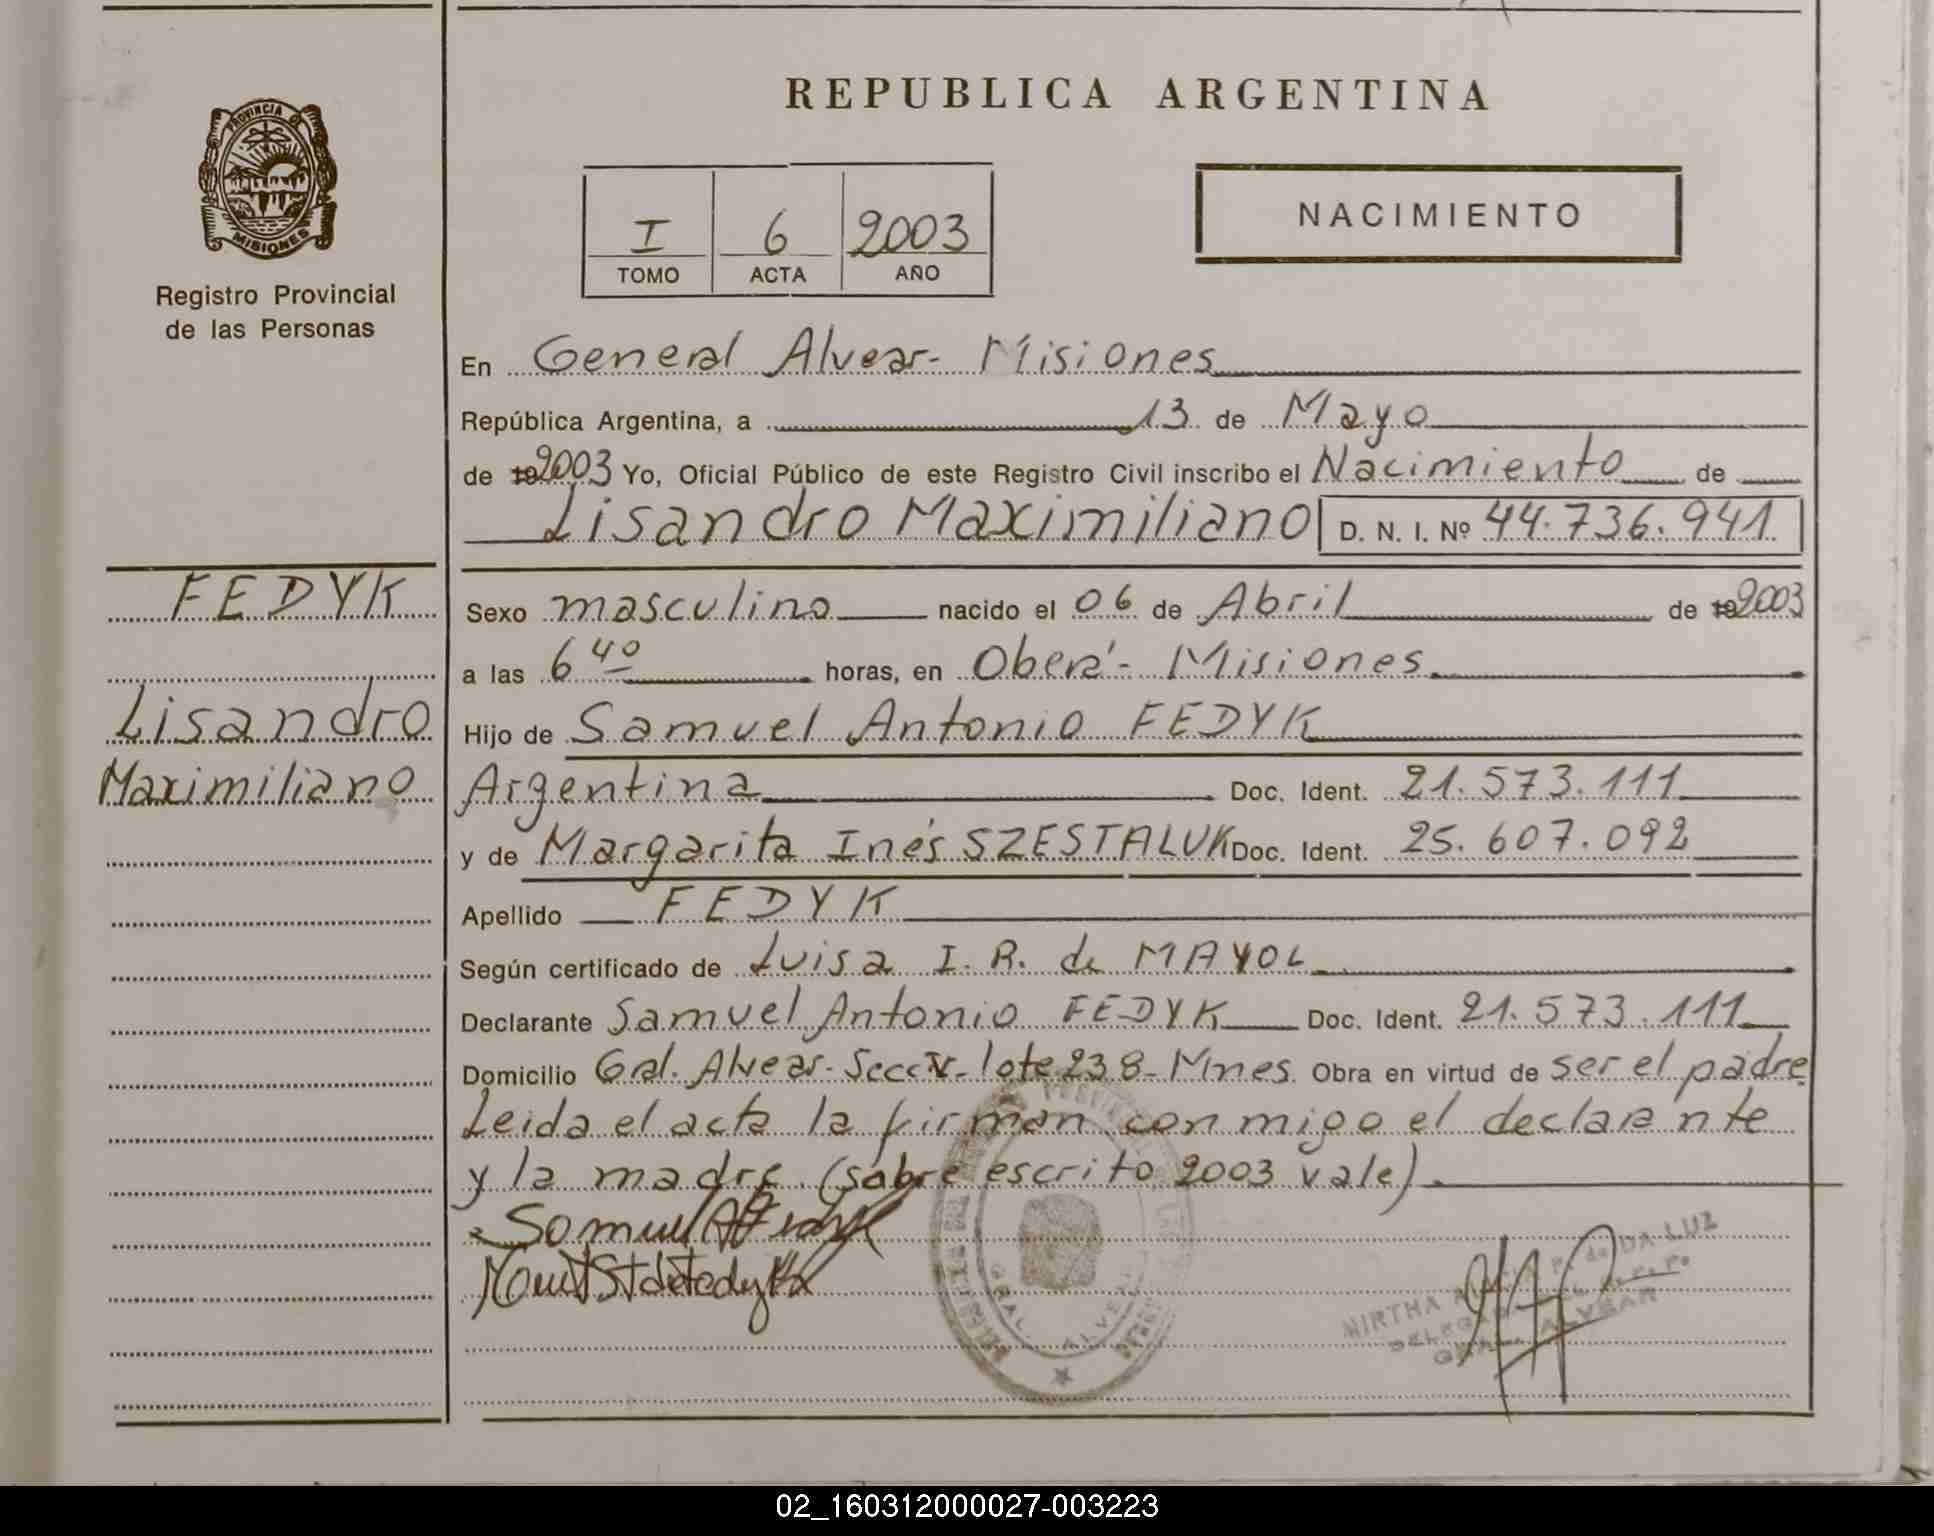 REPUBLICA ARGENTINA
PROVINCIA DE
MISIONES
Registro Provincial
de las Personas
I 6 2003
TOMO ACTA AÑO
NACIMIENTO
En General Alvear- Misiones
República Argentina, a 13 de Mayo
de 19 2003 Yo, Oficial Público de este Registro Civil inscribo el Nacimiento de
Lisandro Maximiliano D. N. I. Nº 44.736.941
FEDYK
Lisandro
Maximiliano
Sexo masculino nacido el 06 de Abril de 19 2003
a las 6 40 horas, en Oberá- Misiones
Hijo de Samuel Antonio FEDYK
Argentina Doc. Ident. 21.573.111
y de Margarita Inés SZESTALUK Doc. Ident. 25.607.092
Apellido FEDYK
Según certificado de Luisa I. R. de MAYOL
Declarante Samuel Antonio FEDYK Doc. Ident. 21.573.111
Domicilio Gral. Alvear- Secc V- lote 238- Mnes Obra en virtud de ser el padre
Leida el acta la firman conmigo el declarante
y la madre (sobre escrito 2003 vale)
GRAL. ALVEAR
MIRTHA P. de DA LUZ
DELEGADA
GRAL. ALVEAR
02_160312000027-003223